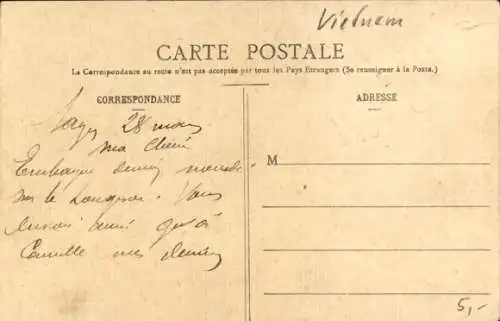 Vietnam
CARTE POSTALE
La Correspondance au recto n'est pas acceptée par tous les Pays Etrangers (Se renseigner à la Poste.)
CORRESPONDANCE
ADRESSE
28 mars
ma Chérie
Embarque demain
sur le Vous
qu'à
Camille mes
M
5,-